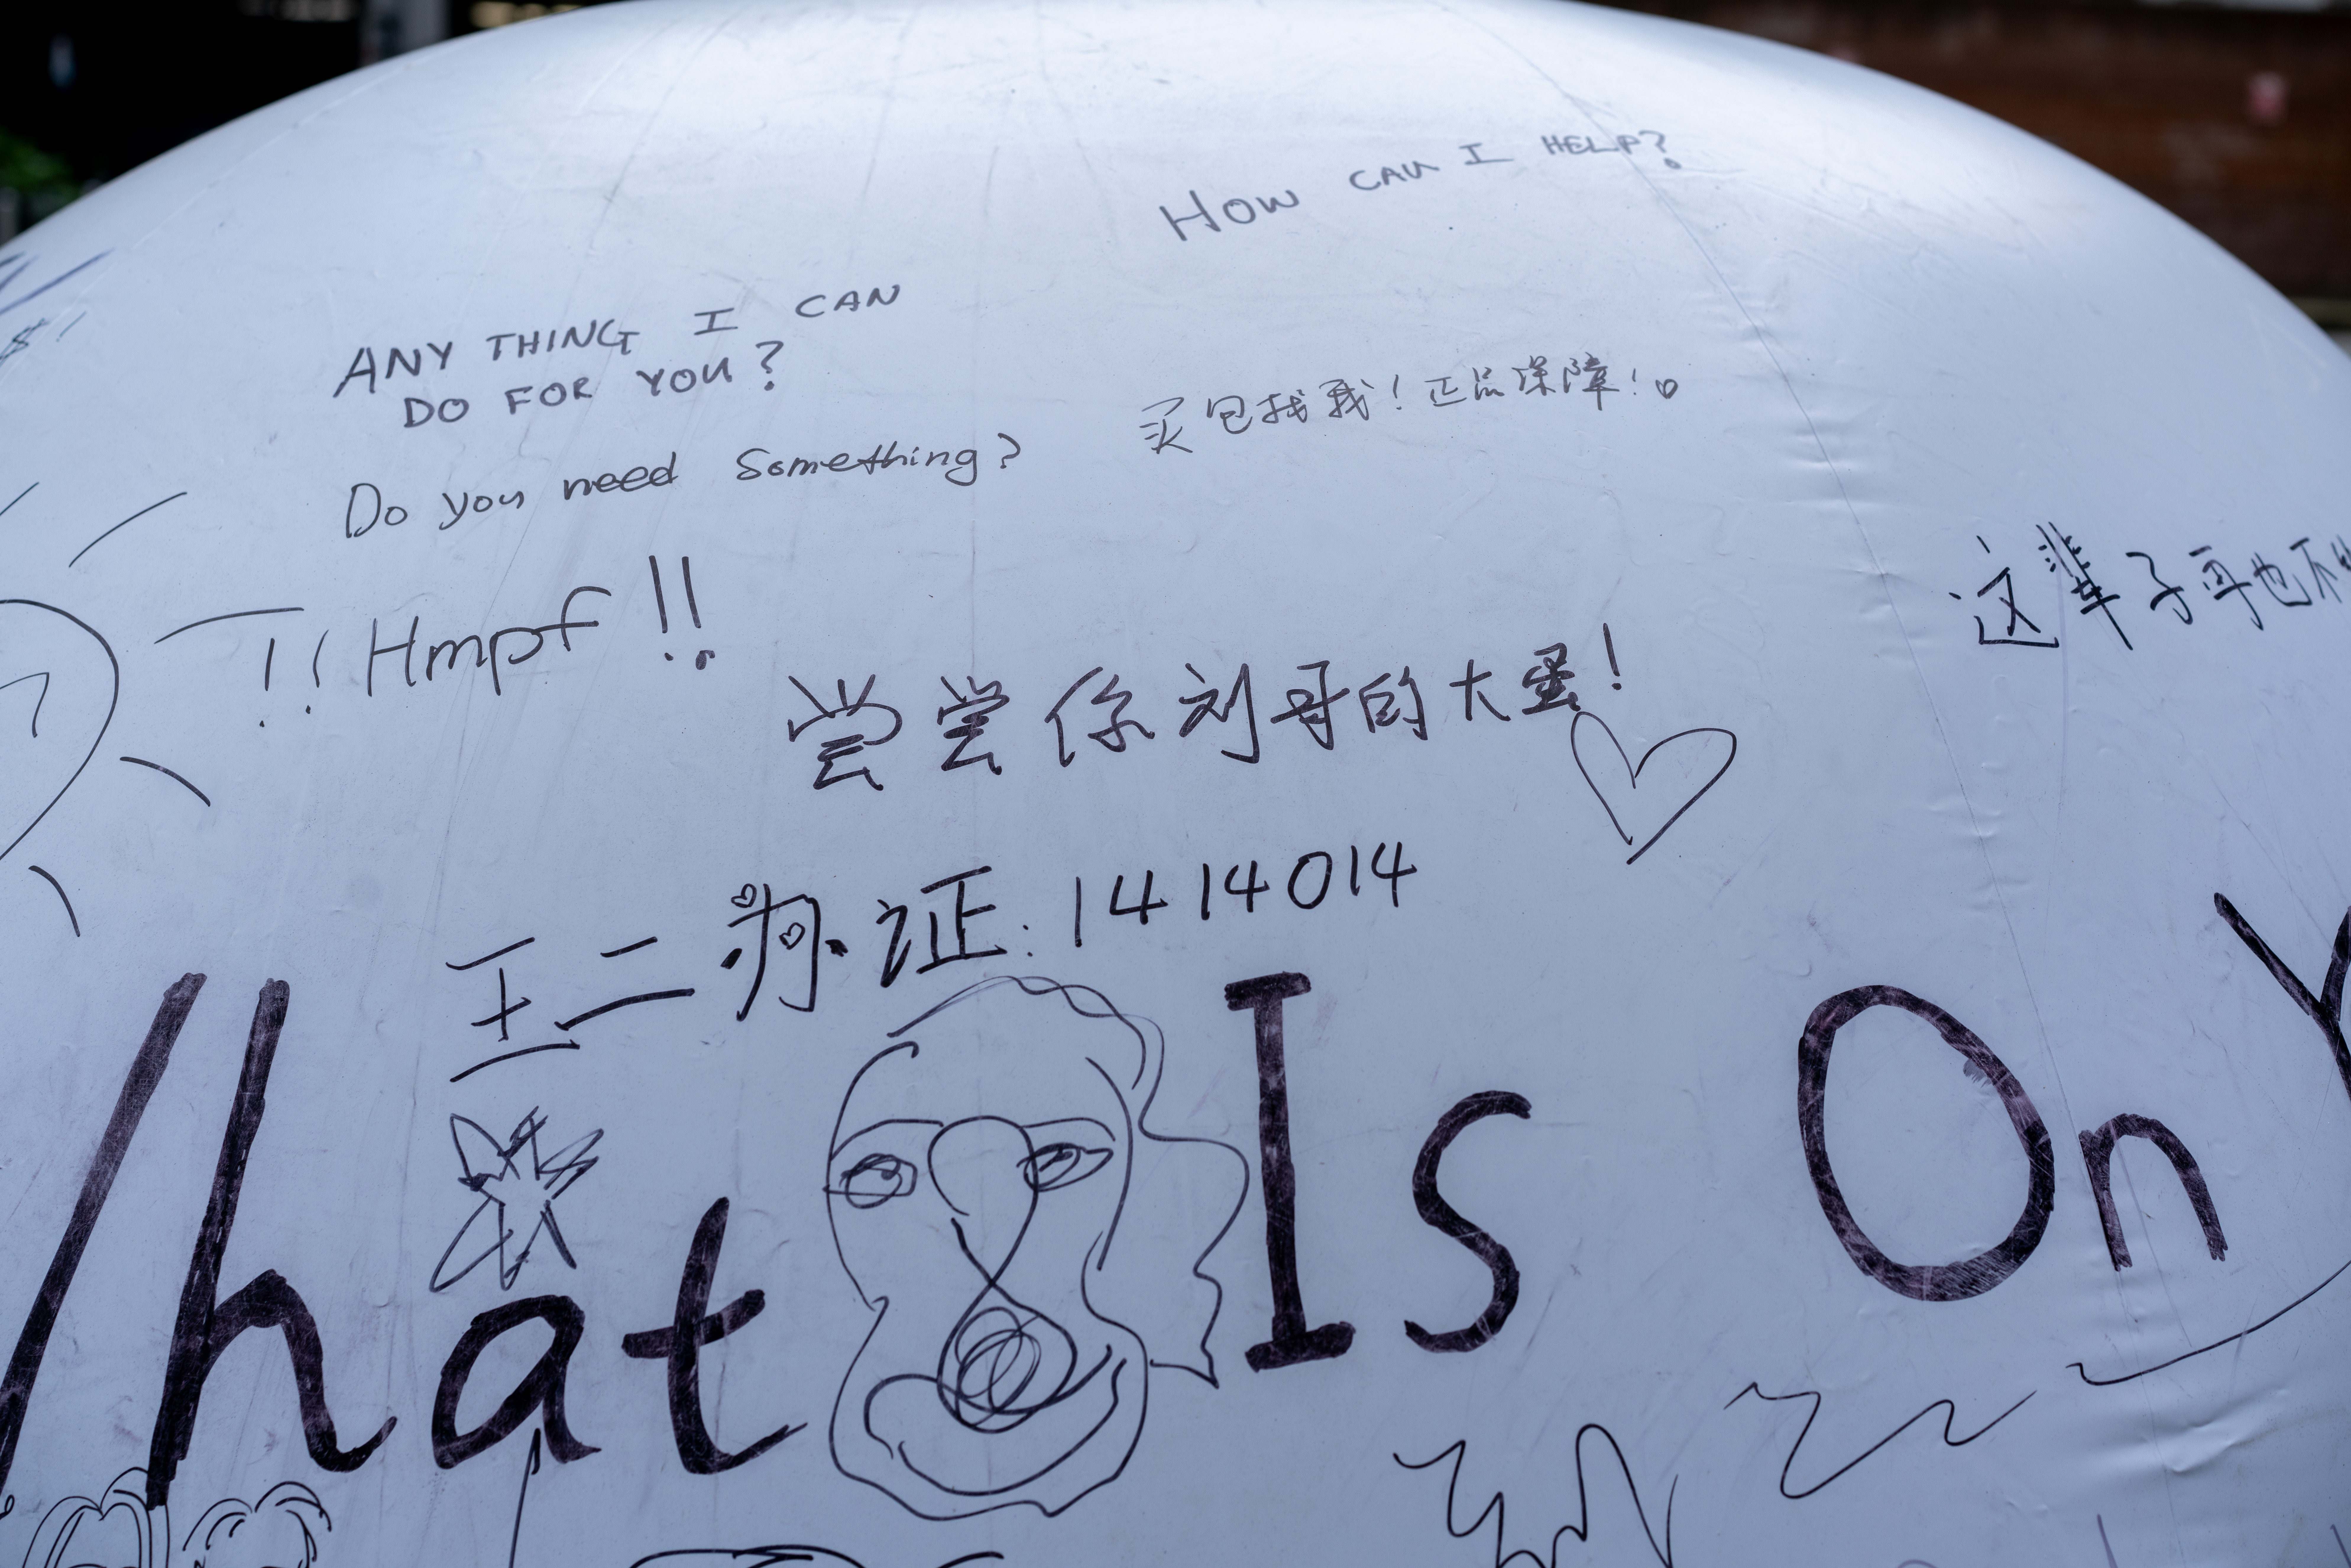 HOW CAN I HELP?
ANYTHING I CAN
DO FOR YOU?
买包找我！正品保障！
Do you need Something?
这辈子再也不
!! Hmpf !!
尝尝你刘哥的大蛋！
王二办证：1414014
What Is On